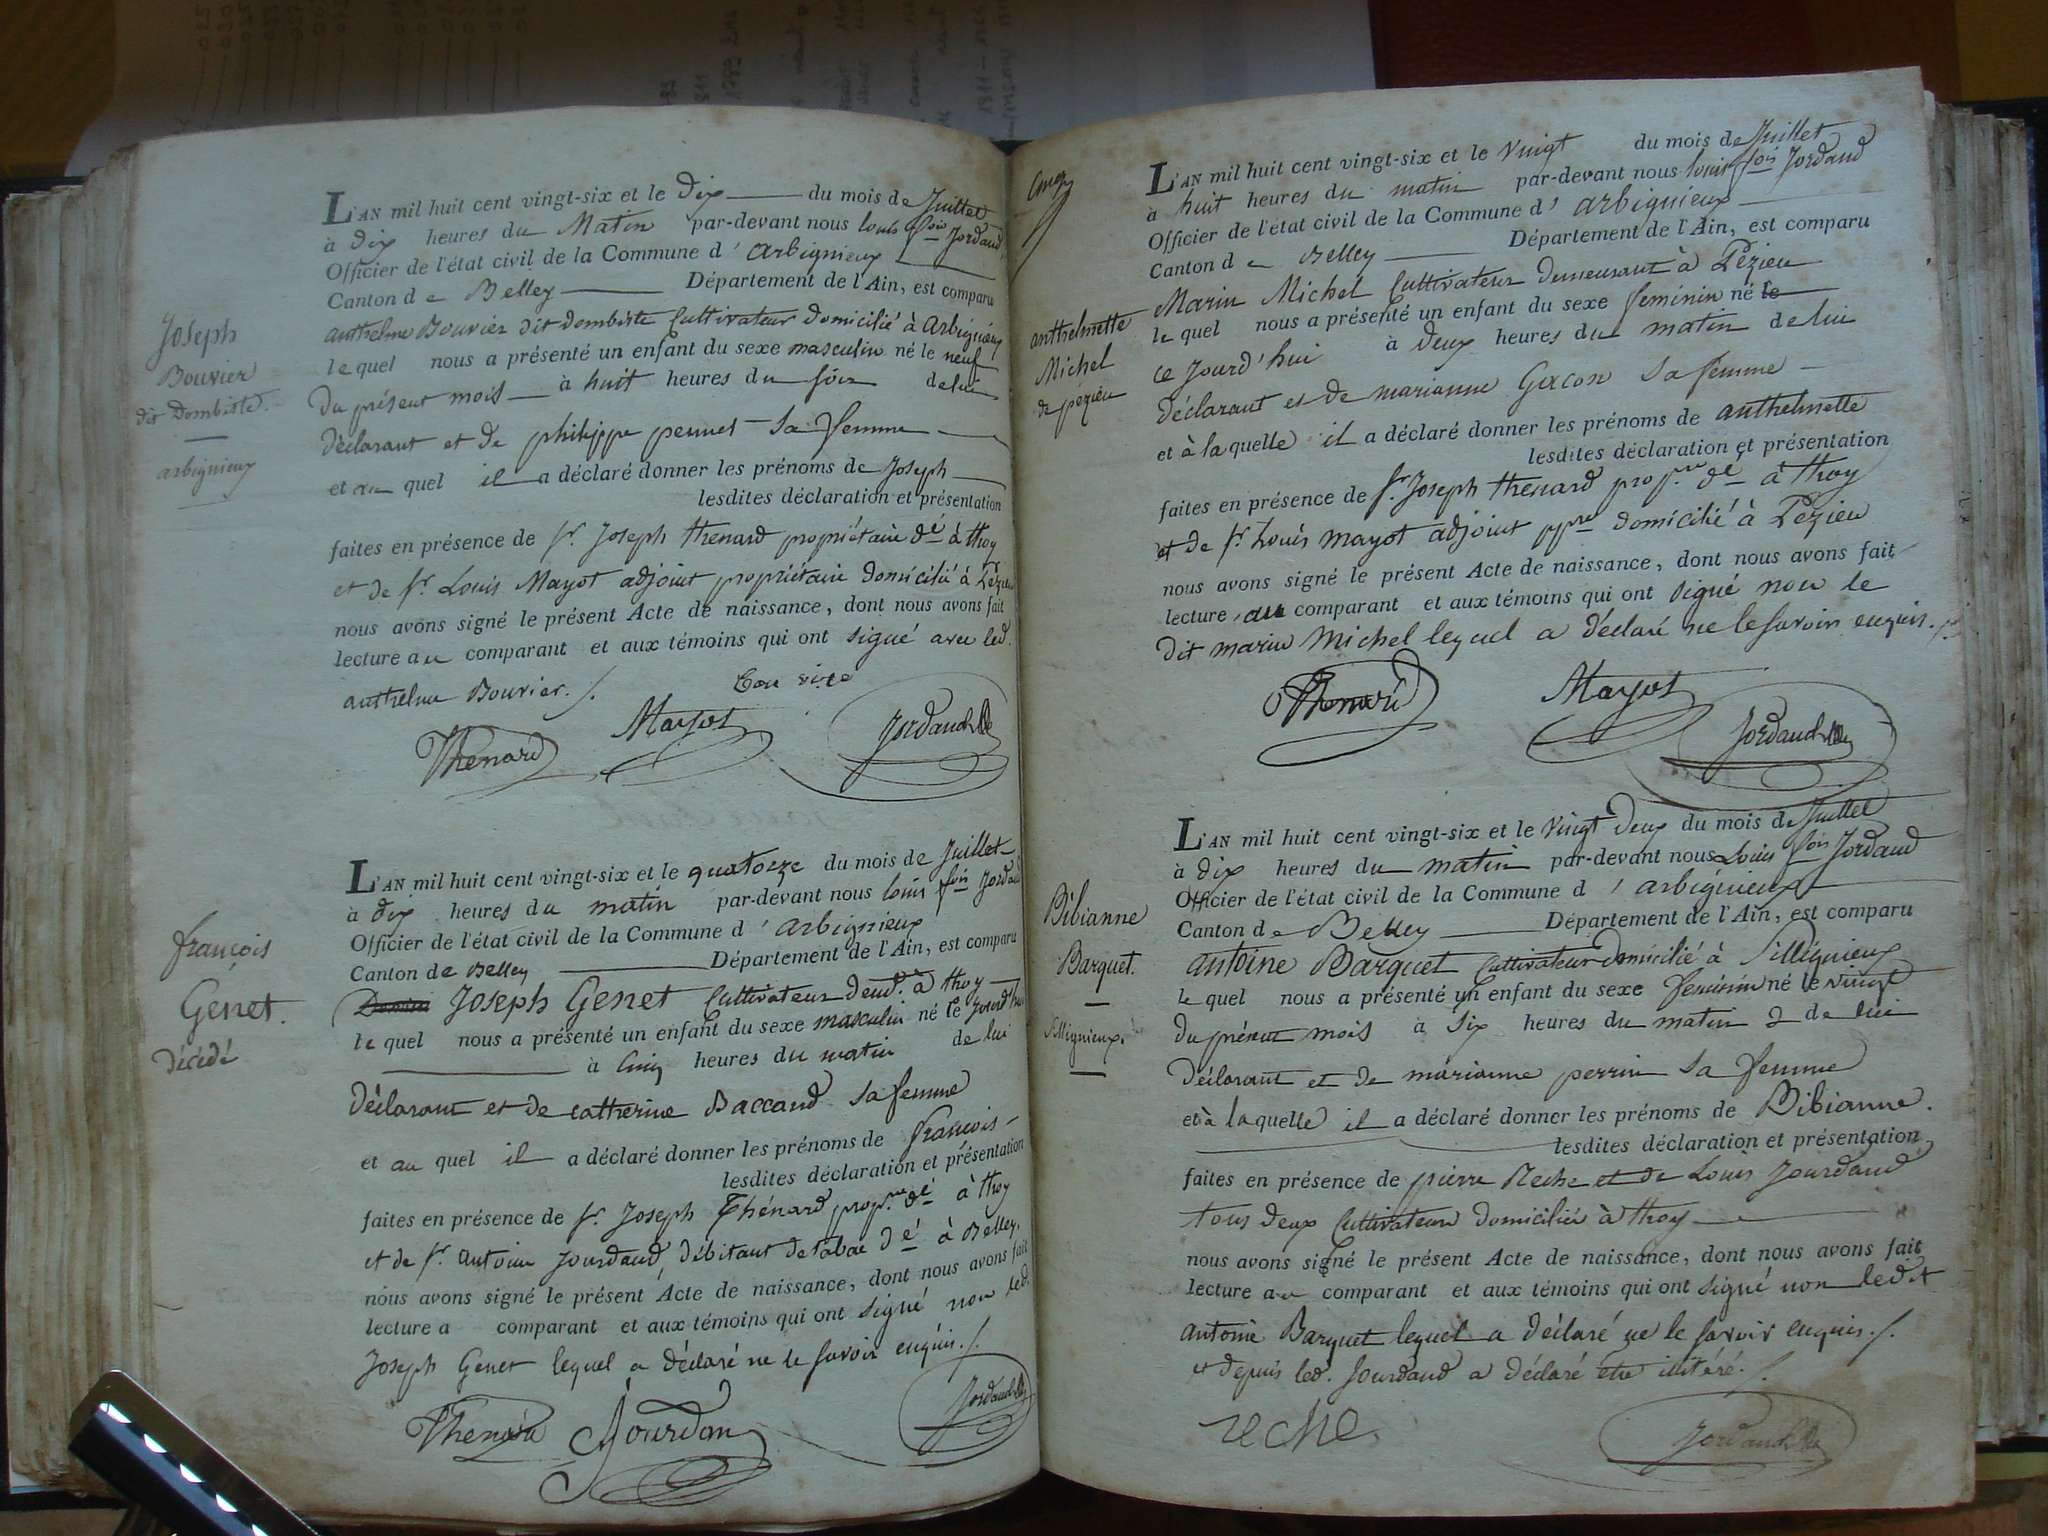 Joseph
Bouvier
dit Dombiste.
arbignieux
L'AN mil huit cent vingt-six et le dix du mois de Juillet
à dix heures du Matin par-devant nous louis fois Jordaud
Officier de l'état civil de la Commune d' arbignieux
Canton de Belley Département de l'Ain, est comparu
anthelme Bouvier dit dombiste Cultivateur domicilié à Arbignieux
lequel nous a présenté un enfant du sexe masculin né le neuf
du présent mois à huit heures du soir de lui
déclarant et de philippe pernet sa femme
et au quel il a déclaré donner les prénoms de Joseph
lesdites déclaration et présentation
faites en présence de sr. Joseph thenard propriétaire dé à thoy
et de sr. Louis Mayot adjoint propriétaire domicilié à Pézieu
nous avons signé le présent Acte de naissance, dont nous avons fait
lecture au comparant et aux témoins qui ont signé avec led.
anthelme Bouvier./.
Bou vier
Thenard Mayot Jordaud
françois
Genet.
décédé
L'AN mil huit cent vingt-six et le quatorze du mois de Juillet
à dix heures du matin par-devant nous louis fois Jordaud
Officier de l'état civil de la Commune d' arbignieux
Canton de Belley Département de l'Ain, est comparu
Joseph Genet Cultivateur demt. à thoy
le quel nous a présenté un enfant du sexe masculin né le Jourd'hui
à Cinq heures du matin de lui
déclarant et de catherine Baccaud sa femme
et au quel il a déclaré donner les prénoms de françois
lesdites déclaration et présentation
faites en présence de sr. Joseph Thénard propre. dé à thoy
et de sr. antoine Jourdaud, débitant de tabac dé à Belley,
nous avons signé le présent Acte de naissance, dont nous avons fait
lecture a comparant et aux témoins qui ont signé non led.
Joseph Genet lequel a déclaré ne le savoir enquis./.
Thenard Jourdan Jordaud
anthelmette
Michel
de pézieu
L'AN mil huit cent vingt-six et le Vingt du mois de Juillet
à huit heures du matin par-devant nous louis fois Jordaud
Officier de l'état civil de la Commune d' arbignieux
Canton de Belley Département de l'Ain, est comparu
Marin Michel Cultivateur demeurant à Pézieu
le quel nous a présenté un enfant du sexe feminin né le
ce Jourd'hui à deux heures du matin de lui
déclarant et de marianne Gacon sa femme
et à la quelle il a déclaré donner les prénoms de anthelmette
lesdites déclaration et présentation
faites en présence de sr. Joseph thenard propre. dé à thoy
et de sr. Louis mayot adjoint ppre domicilié à Pézieu
nous avons signé le présent Acte de naissance, dont nous avons fait
lecture au comparant et aux témoins qui ont signé non le
dit marin Michel lequel a déclaré ne le savoir enquis./.
Thenard Mayot
Jordaud
Bibianne
Barquet.
Sillignieux.
L'AN mil huit cent vingt-six et le Vingt deux du mois de Juillet
à dix heures du matin par-devant nous Louis fois Jordaud
Officier de l'état civil de la Commune d' arbignieux
Canton de Belley Département de l'Ain, est comparu
antoine Barquet Cultivateur domicilié à Sillignieux
le quel nous a présenté un enfant du sexe feminin né le vingt
du présent mois à Six heures du matin de lui
déclarant et de marianne perrin sa femme
et à la quelle il a déclaré donner les prénoms de Bibianne.
lesdites déclaration et présentation
faites en présence de pierre Reche et de Louis Jourdaud
tous deux Cultivateurs domiciliés à thoy
nous avons signé le présent Acte de naissance, dont nous avons fait
lecture au comparant et aux témoins qui ont signé non ledit
antoine Barquet lequel a déclaré ne le savoir enquis./.
et depuis led. Jourdaud a déclaré etre illitéré./.
reche Jordaud